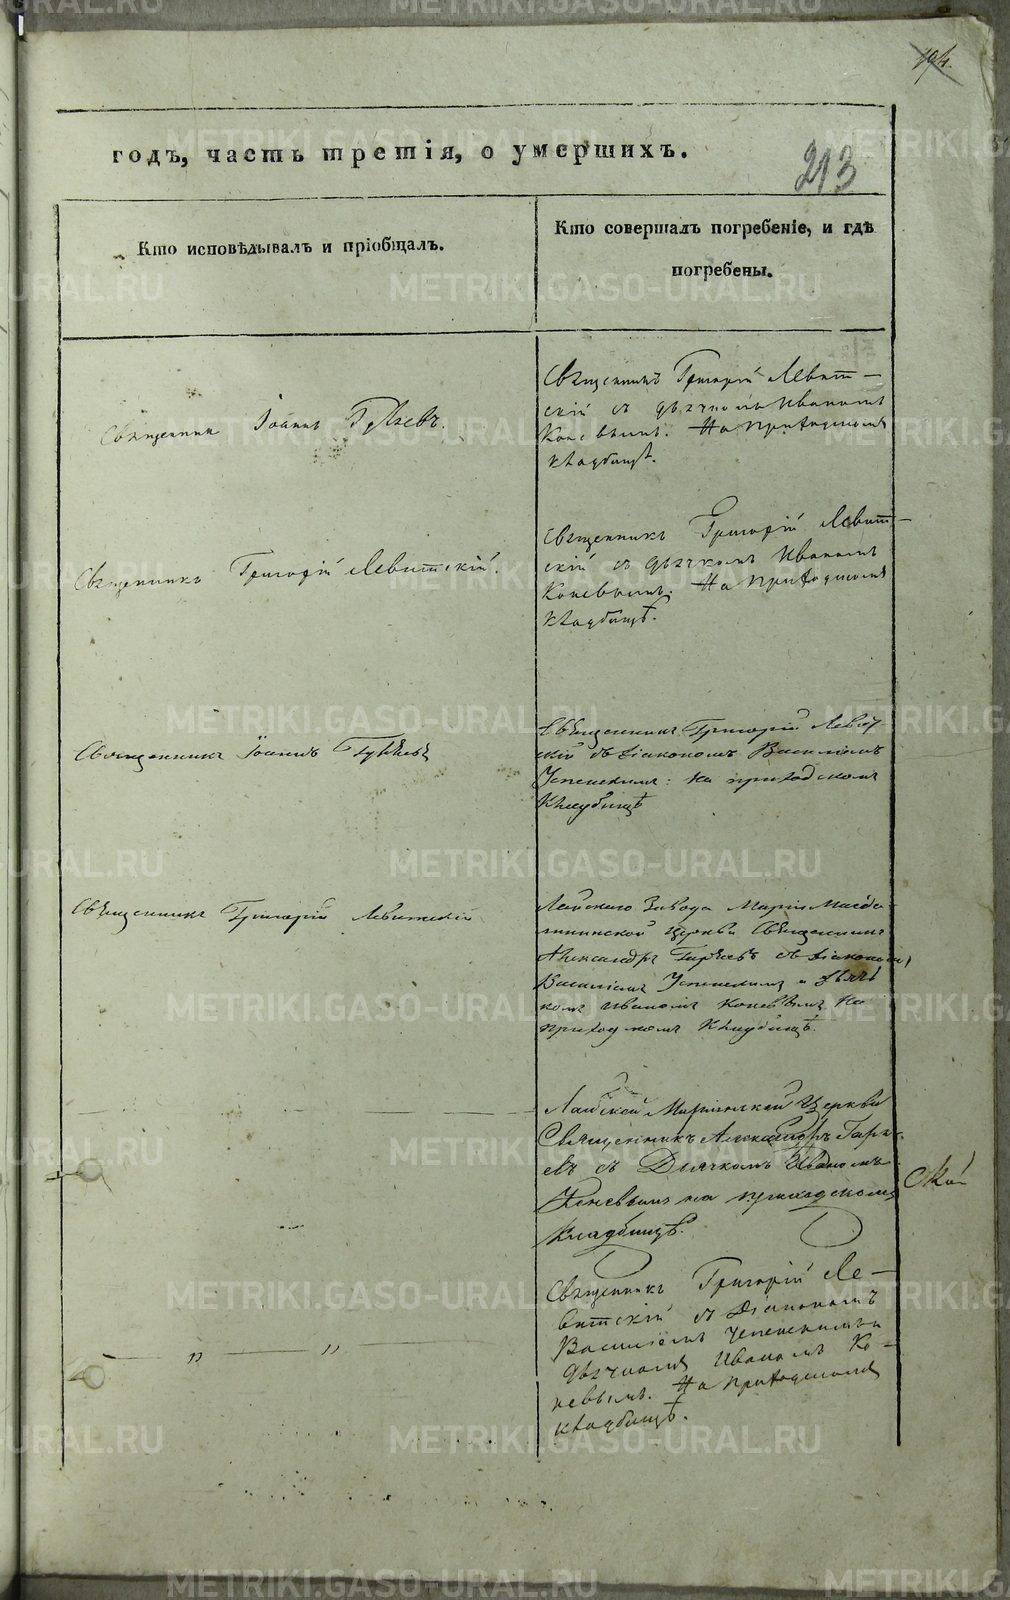 194.
годъ, часть третія, о умершихъ.
213
Кто исповѣдывалъ и пріобщалъ.
Кто совершалъ погребеніе, и гдѣ
погребены.
Священникъ Іоаннъ
Священникъ Григорій Левит-
скій съ дьячкомъ Иваномъ
Коневымъ. На Приходскомъ
кладбищѣ.
Священникъ Григорій Левитскій.
Священникъ Григорій Левит-
скій съ дьячкомъ Иваномъ
Коневымъ. На Приходскомъ
кладбищѣ.
Священникъ Іоаннъ
Священникъ Григорій Левит
скій съ Діакономъ Василіемъ
Успенскимъ: на приходскомъ
кладбищѣ
Священникъ Григорій Левитскій
Лайскаго Завода Маріи Магда-
лининской Церкви Священникъ
Александръ съ Діакономъ
Василіемъ Успенскимъ и Дьяч
комъ Иваномъ Коневымъ На
приходскомъ Кладбищѣ.
Лайской Маріинской Церкви
Священникъ Александръ
съ Дьячкомъ Иваномъ
Коневымъ на приходскомъ
Кладбищѣ.
Священникъ Григорій Ле-
витскій съ Діакономъ
Василіемъ Успенскимъ и
дьячкомъ Иваномъ Ко-
невымъ. На Приходскомъ
кладбищѣ.
— " — " —
METRIKI.GASO-URAL.RU